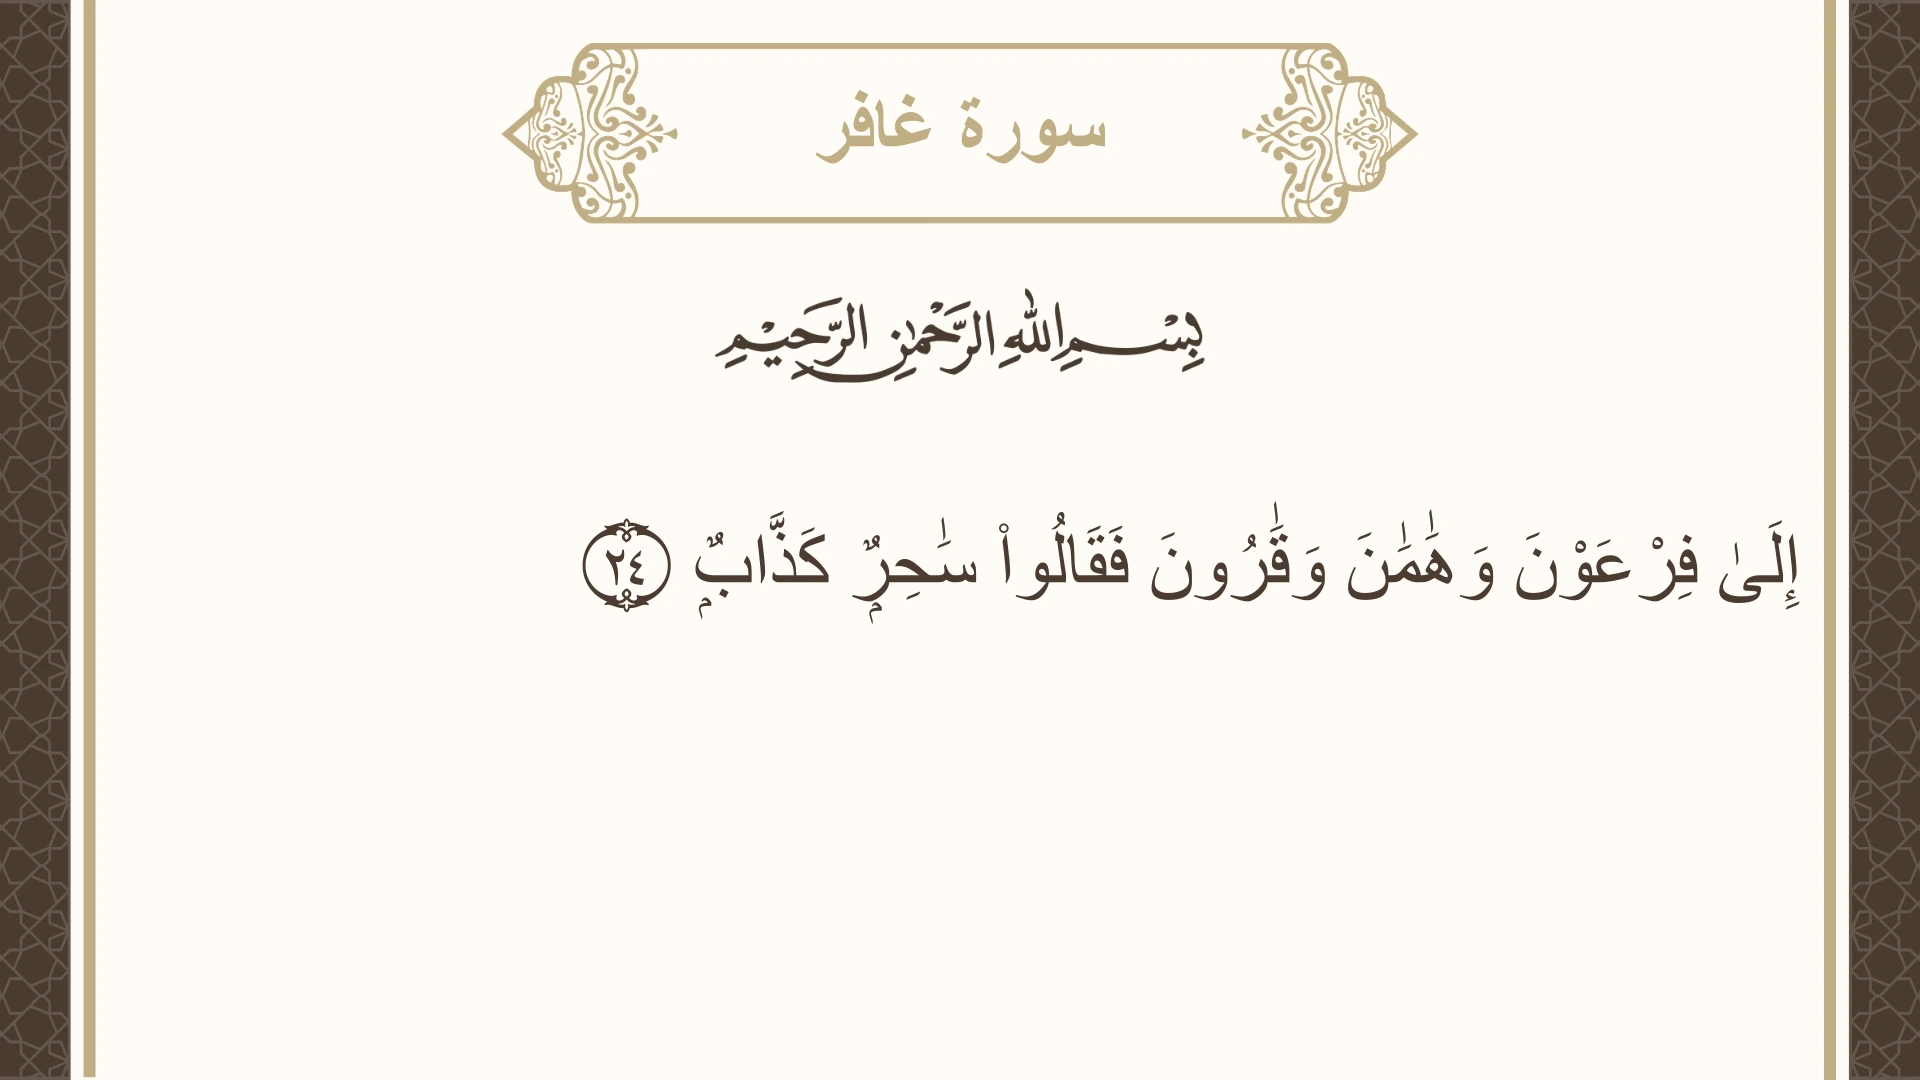 سورة غافر
بِسْمِ اللهِ الرَّحْمٰنِ الرَّحِيْمِ
إِلَىٰ فِرْعَوْنَ وَهَٰمَٰنَ وَقَٰرُونَ فَقَالُوا۟ سَٰحِرٌۭ كَذَّابٌۭ ٢٤